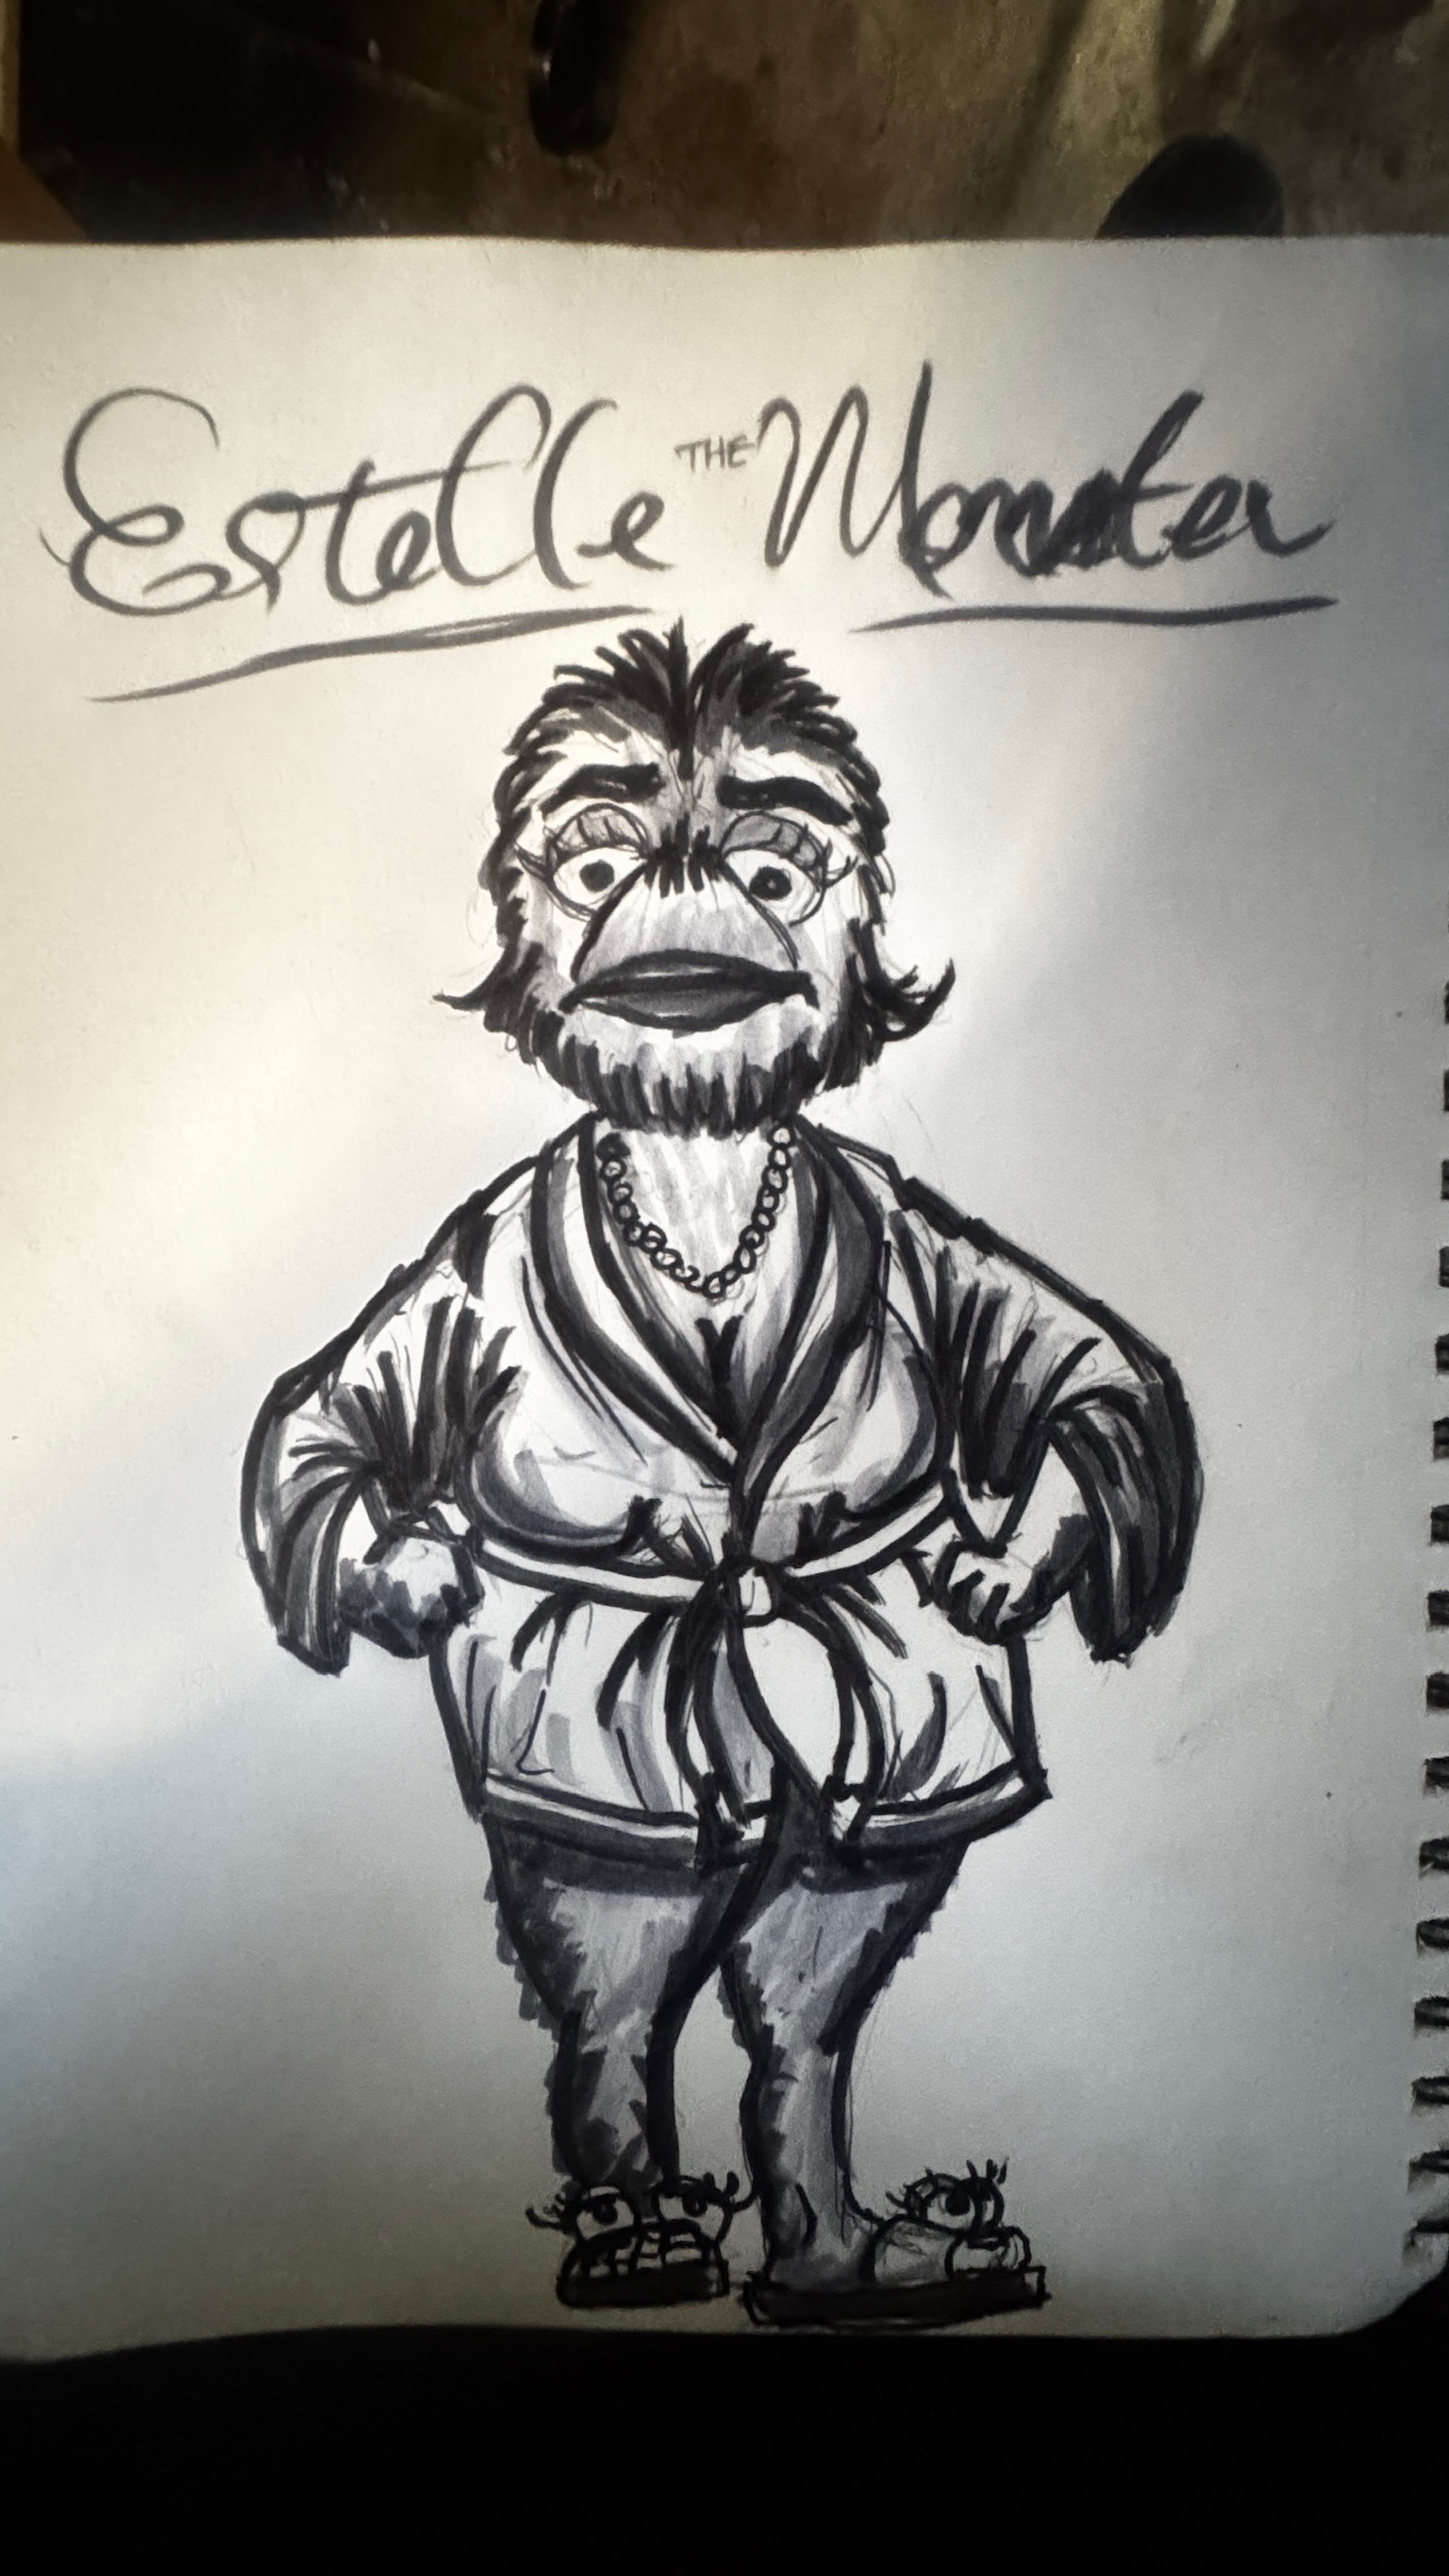 Estelle THE Monster